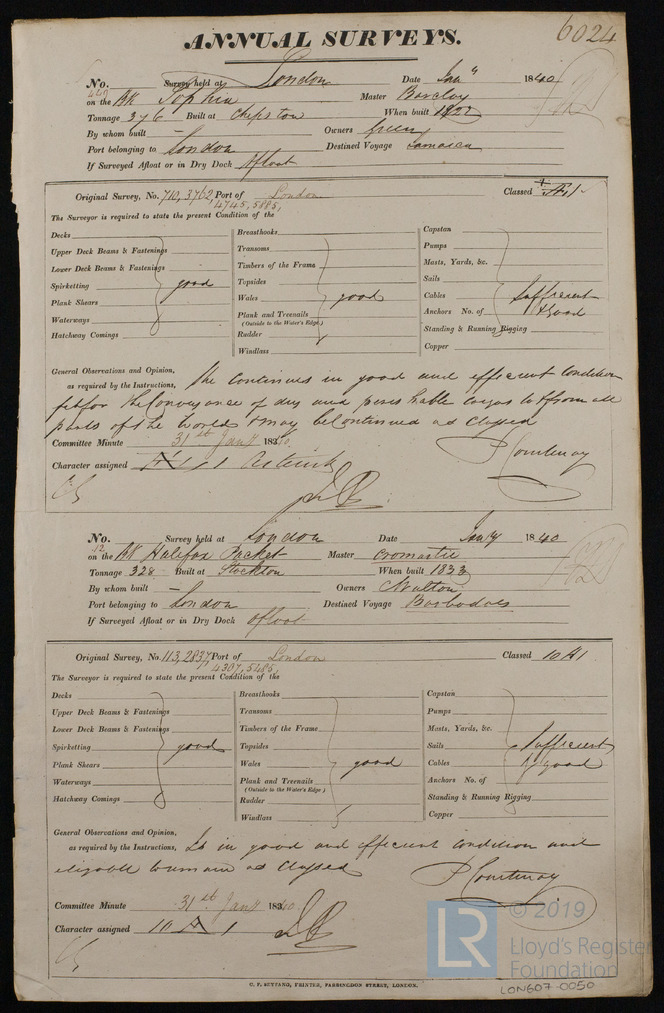 6024
ANNUAL SURVEYS.
No. 449 Survey held at London Date Jany 1840
on the Bk Tophin Master Barclay
Tonnage 376 Built at Chepstow When built 1822
By whom built — Owners Green
Port belonging to London Destined Voyage Jamaica
If Surveyed Afloat or in Dry Dock Afloat
Original Survey, No. 710, 3762 Port of London Classed Æ1
4745, 5885,
The Surveyor is required to state the present Condition of the
Decks
Upper Deck Beams & Fastenings
Lower Deck Beams & Fastenings
Spirketting good
Plank Shears
Waterways
Hatchway Comings
Breasthooks
Transoms
Timbers of the Frame
Topsides
Wales good
Plank and Treenails
(Outside to the Water's Edge)
Rudder
Windlass
Capstan
Pumps
Masts, Yards, &c.
Sails
Cables Sufficient
Anchors No. of & Good
Standing & Running Rigging
Copper
General Observations and Opinion,
as required by the Instructions, She continues in good and efficient condition
fit for the Conveyance of dry and perishable cargos to & from all
parts of the World & may be Continued as Classed
Committee Minute 31st Jany 1840
P Courtenay
Character assigned Æ 1 Asterisk
No. 12 Survey held at London Date Jany 1840
on the Bk Halifax Packet Master Cromartie
Tonnage 328 Built at Stockton When built 1833
By whom built — Owners
Port belonging to London Destined Voyage Barbadoes
If Surveyed Afloat or in Dry Dock Afloat
Original Survey, No. 113, 2837, Port of London Classed 10 A1
4307, 5485,
The Surveyor is required to state the present Condition of the
Decks
Upper Deck Beams & Fastenings
Lower Deck Beams & Fastenings
Spirketting good
Plank Shears
Waterways
Hatchway Comings
Breasthooks
Transoms
Timbers of the Frame
Topsides
Wales good
Plank and Treenails
(Outside to the Water's Edge)
Rudder
Windlass
Capstan
Pumps
Masts, Yards, &c.
Sails Sufficient
Cables & good
Anchors No. of
Standing & Running Rigging
Copper
General Observations and Opinion,
as required by the Instructions, Is in good and efficient condition and
eligable to remain as Classed
P Courtenay
Committee Minute 31st Jany 1840
Character assigned 10 A 1
LR © 2019
Lloyd's Register
Foundation
LON607-0050
C. F. SEYFANG, PRINTER, FARRINGDON STREET, LONDON.